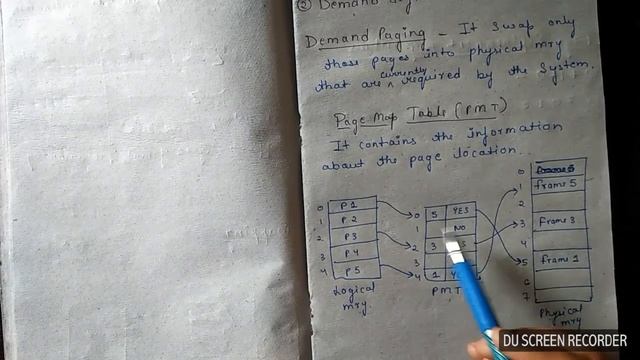 ② Demand
Demand Paging - It swap only
those pages into physical mry
that are currently required by the system.
Page Map Table (PMT)
It contains the information
about the page location..
0 P1
1 P2
2 P3
3 P4
4 P5
Logical
mry
0 5 YES
1 NO
2 3
3
4 1
PMT
0
1 frame 5
2
3 frame 3
4
5 frame 1
6
7
Physical
mry
DU SCREEN RECORDER